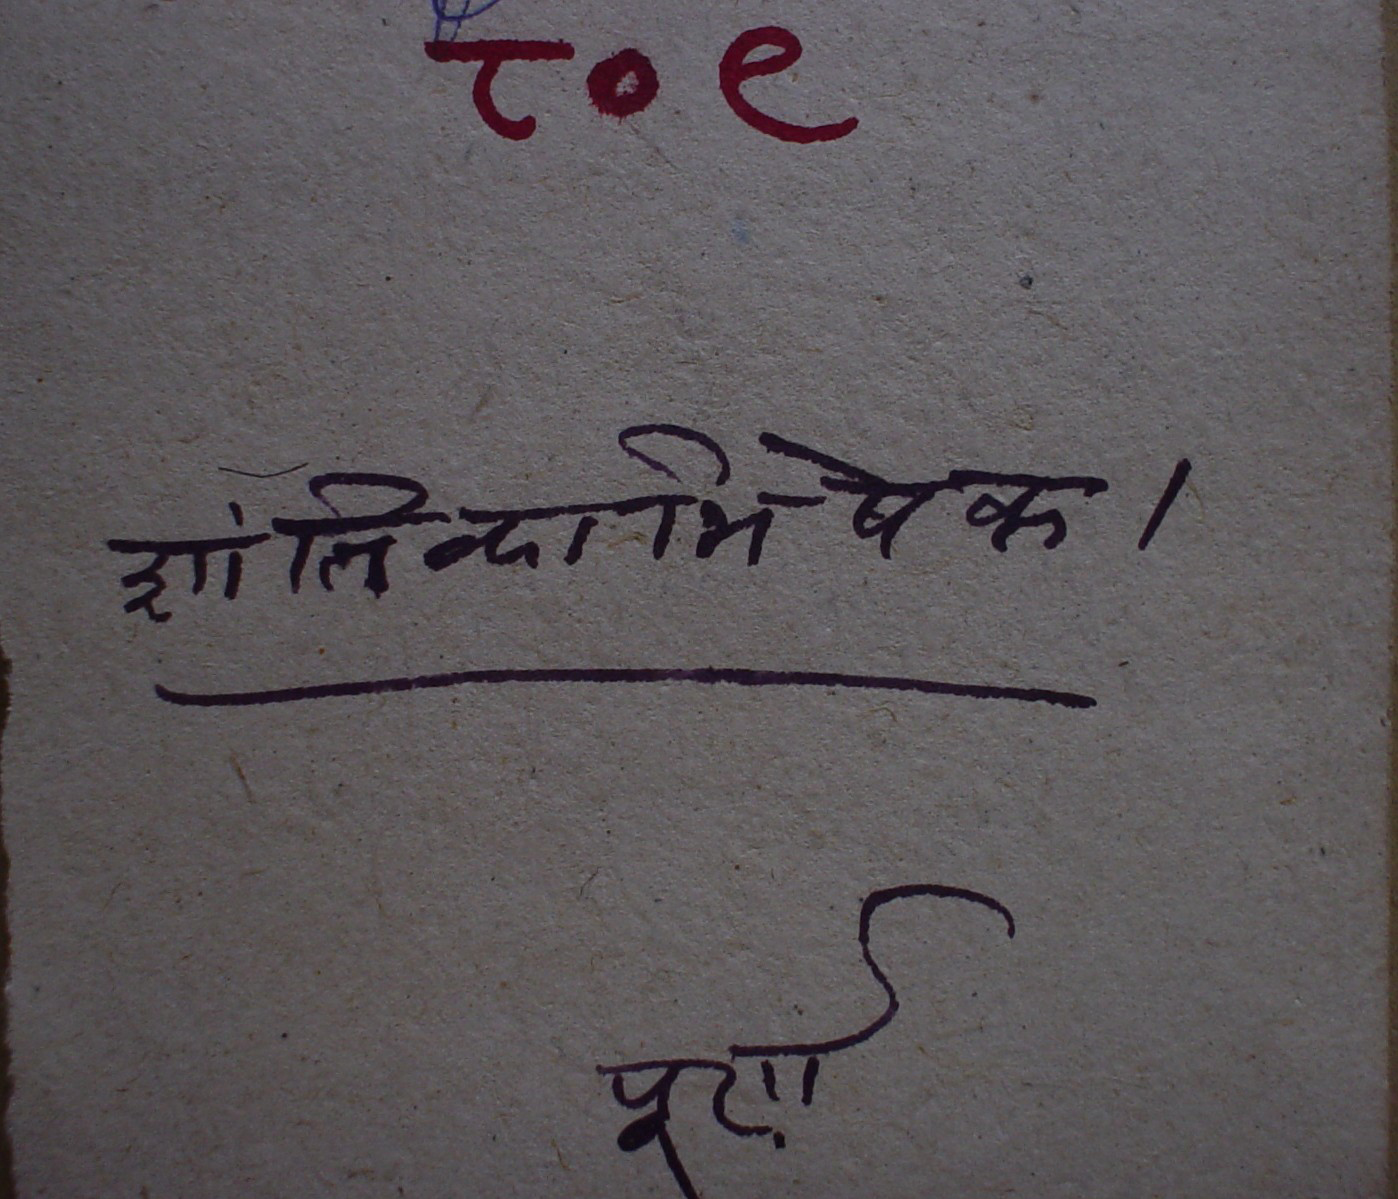 ८०९
शांतिकाभिषेक।
पूर्ण